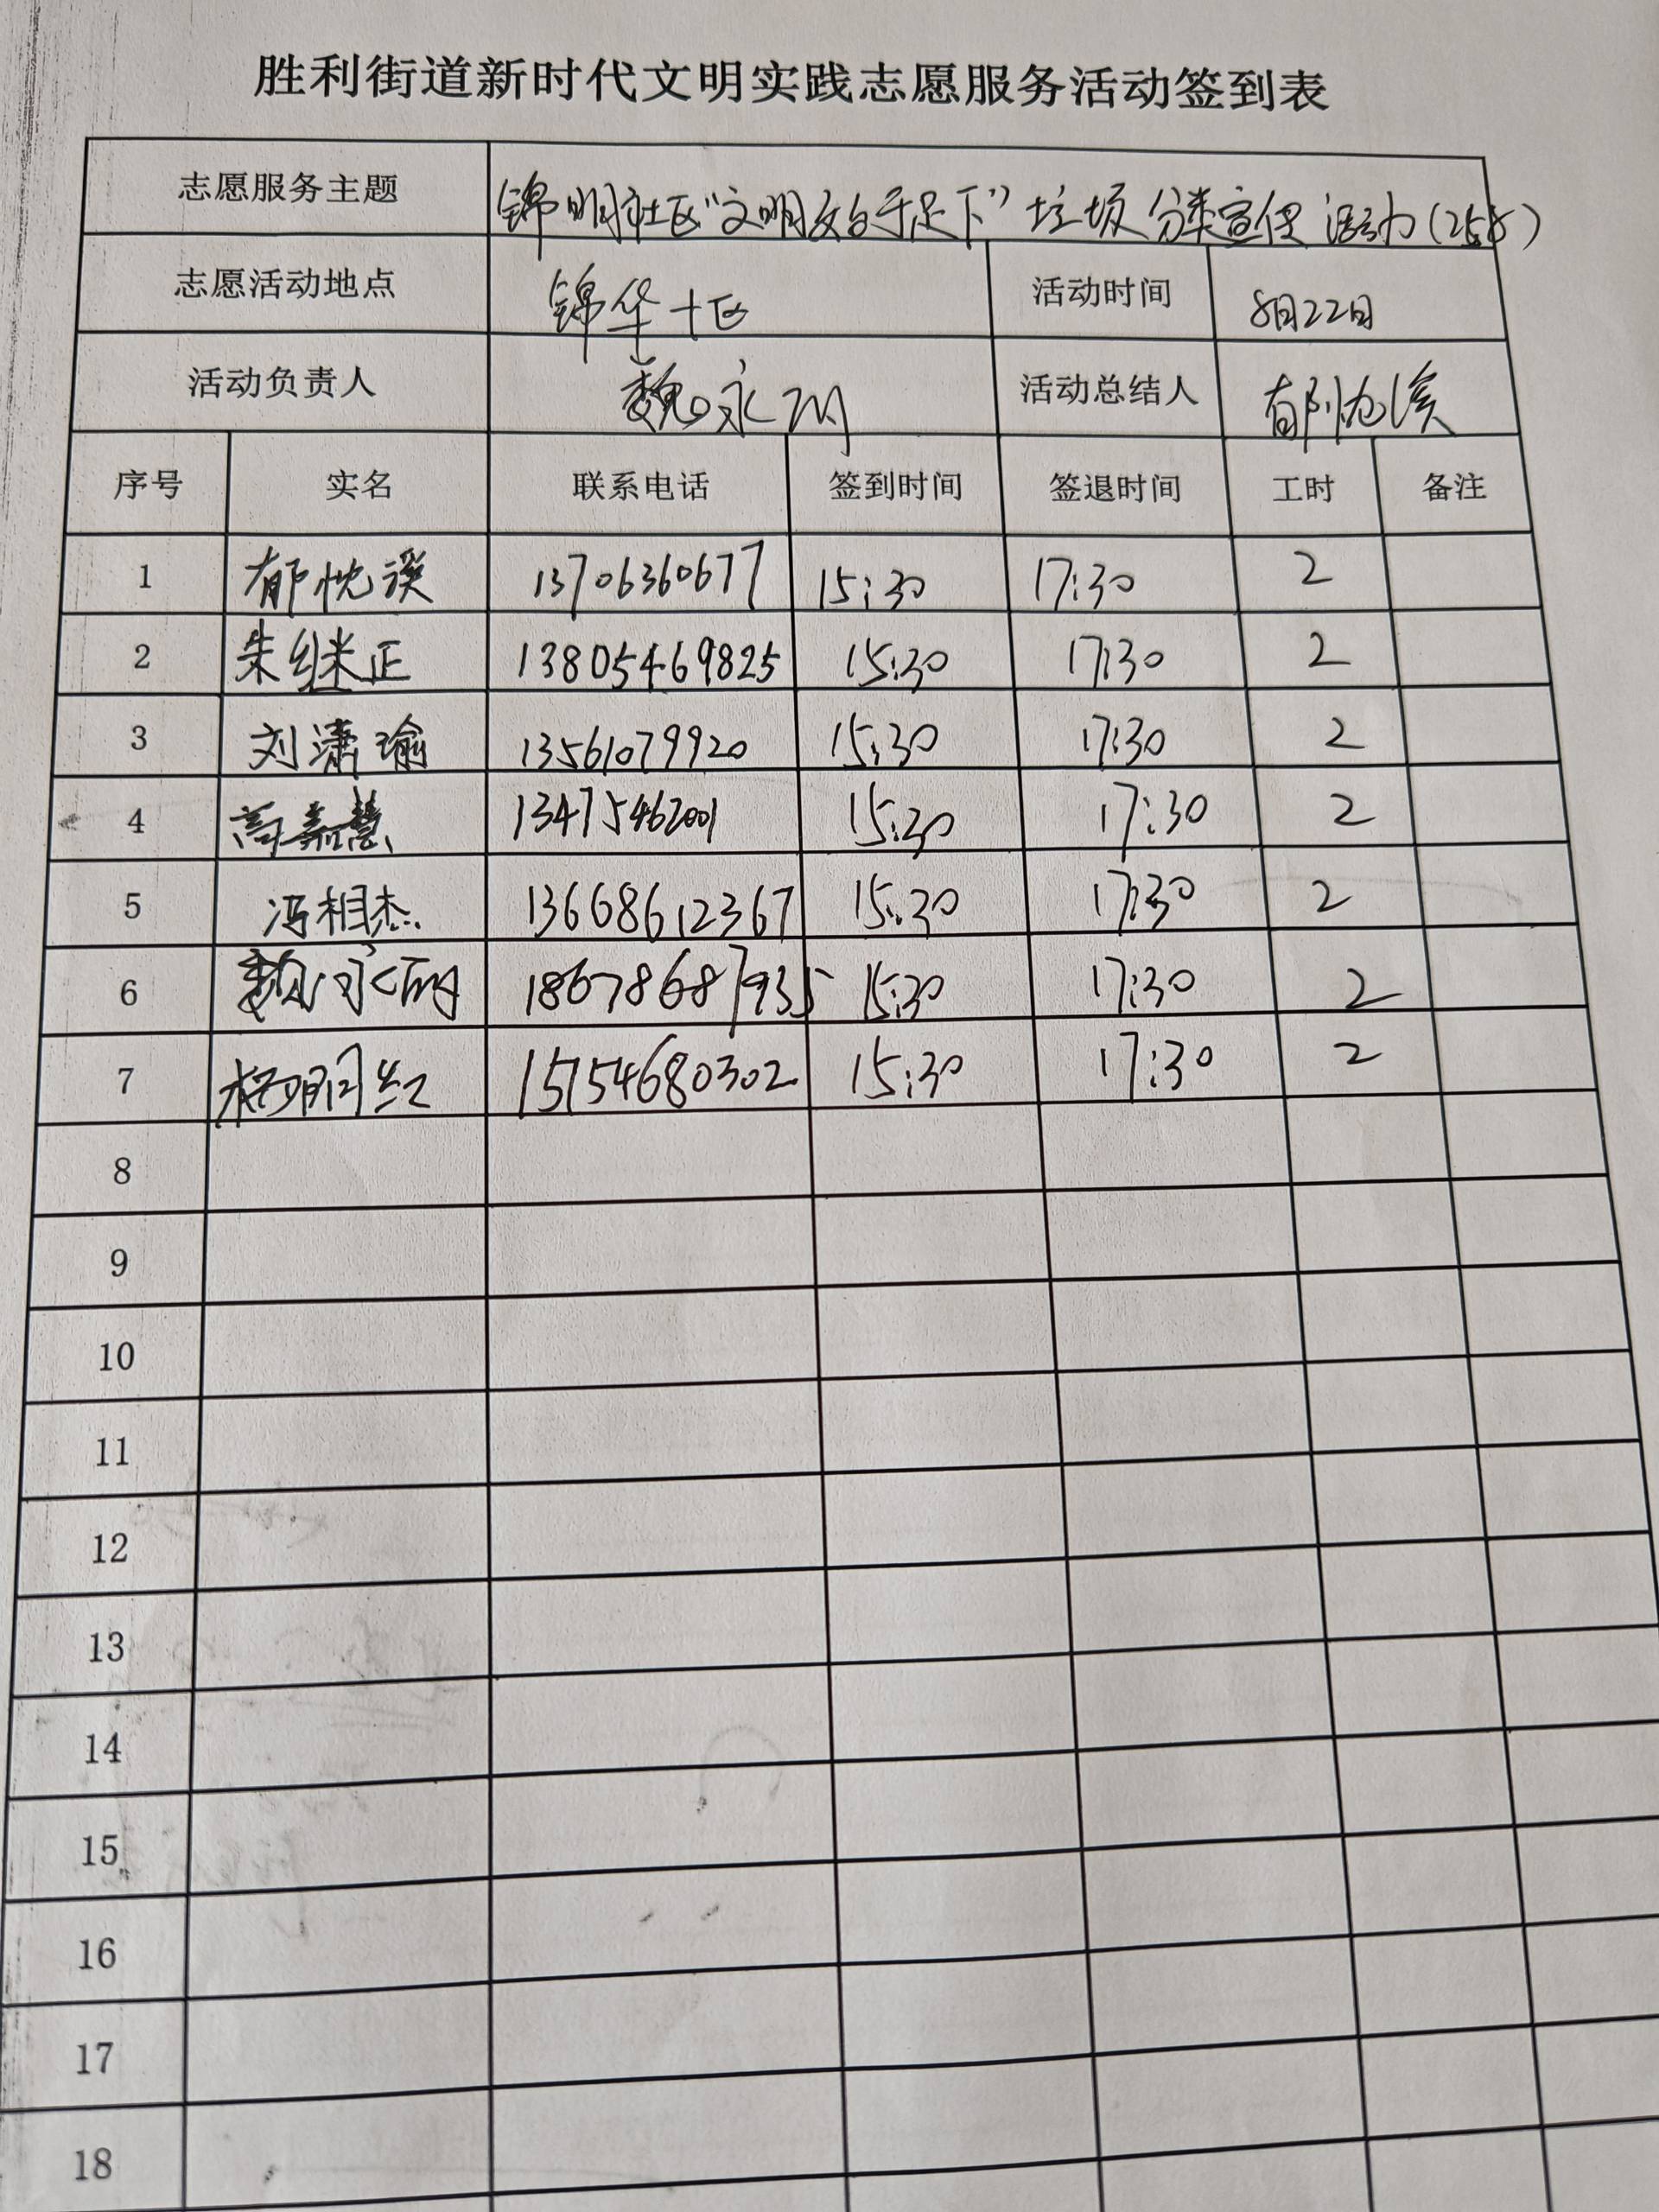 胜利街道新时代文明实践志愿服务活动签到表
志愿服务主题 锦明社区“文明始于足下”垃圾分类宣传活动(258)
志愿活动地点 锦华十区 活动时间 8月22日
活动负责人 魏永 活动总结人 郁忱溪
序号 实名 联系电话 签到时间 签退时间 工时 备注
1 郁忱溪 13706360677 15:30 17:30 2
2 朱继正 13805469825 15:30 17:30 2
3 刘潇瑜 13561079920 15:30 17:30 2
4 高嘉慧 13475462001 15:30 17:30 2
5 冯相杰 13668612367 15:30 17:30 2
6 魏永 18678687935 15:30 17:30 2
7 红 15154680302 15:30 17:30 2
8
9
10
11
12
13
14
15
16
17
18